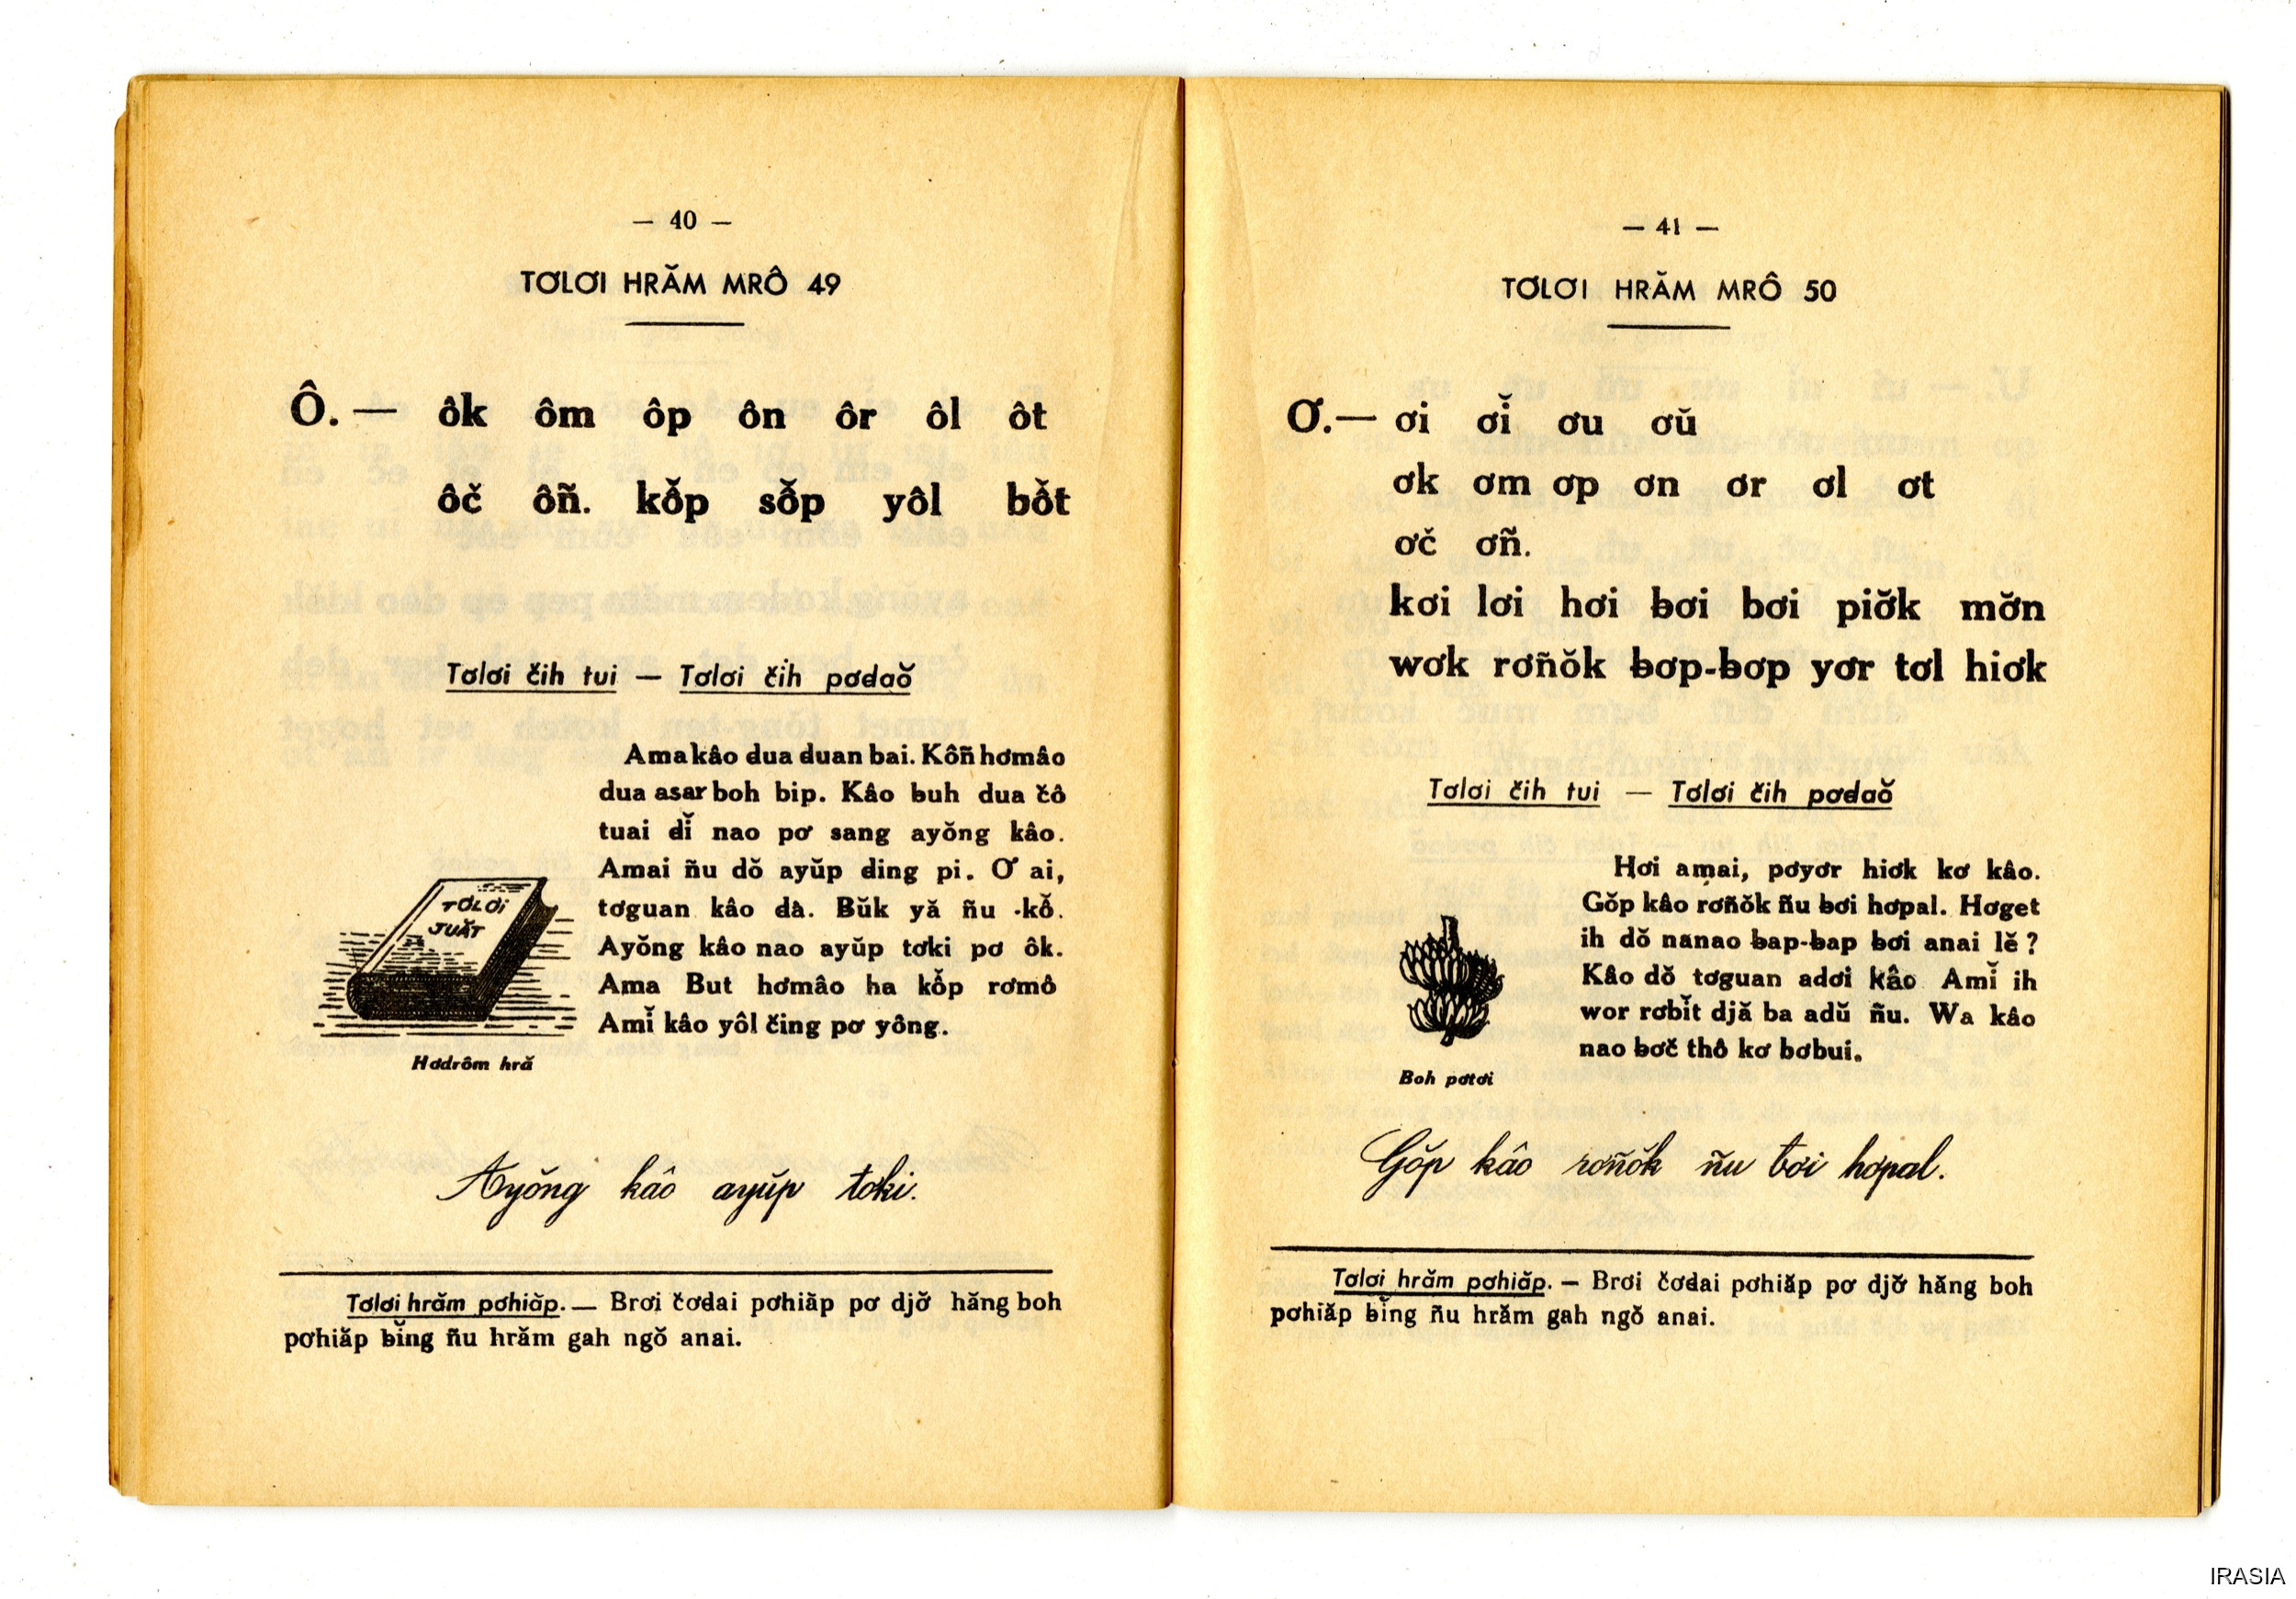 — 40 —
TƠLƠI HRĂM MRÔ 49
Ô. — ôk ôm ôp ôn ôr ôl ôt
ôč ôñ. kô̆p sô̆p yôl bô̆t
Tơlơi čih tui — Tơlơi čih pơđaŏ
Ama kâo dua đuan bai. Kôñ hơmâo
dua asar boh bip. Kâo ƀuh dua čô
tuai đĭ nao pơ sang ayŏng kâo.
Amai ñu dŏ ayŭp đing pi. Ơ ai,
tơguan kâo dà. Ƀŭk yă ñu kô̆.
Ayŏng kâo nao ayŭp tơki pơ ôk.
Ama But hơmâo ha kô̆p rơmô
Amĭ kâo yôl čing pơ yông.
TƠLƠI
JUĂT
Hơdrôm hră
Ayŏng kâo ayŭp tơki.
Tơlơi hrăm pơhiăp. — Brơi čơđai pơhiăp pơ djơ̆ hăng boh
pơhiăp ƀĭng ñu hrăm gah ngŏ anai.
— 41 —
TƠLƠI HRĂM MRÔ 50
Ơ. — ơi ơĭ ơu ơŭ
ơk ơm ơp ơn ơr ơl ơt
ơč ơñ.
kơi lơi hơi ƀơi bơi piơ̆k mơ̆n
wơk rơñŏk ƀơp-ƀơp yơr tơl hiơk
Tơlơi čih tui — Tơlơi čih pơđaŏ
Hơi amai, pơyơr hiơk kơ kâo.
Gŏp kâo rơñŏk ñu ƀơi hơpal. Hơget
ih dŏ nanao ƀap-ƀap ƀơi anai lĕ ?
Kâo dŏ tơguan adơi kâo Amĭ ih
wor rơbĭt djă ba adŭ ñu. Wa kâo
nao ƀơč thô kơ bơbui.
Boh pơtơi
Gŏp kâo rơñŏk ñu ƀơi hơpal.
Tơlơi hrăm pơhiăp. — Brơi čơđai pơhiăp pơ djơ̆ hăng boh
pơhiăp ƀĭng ñu hrăm gah ngŏ anai.
IRASIA